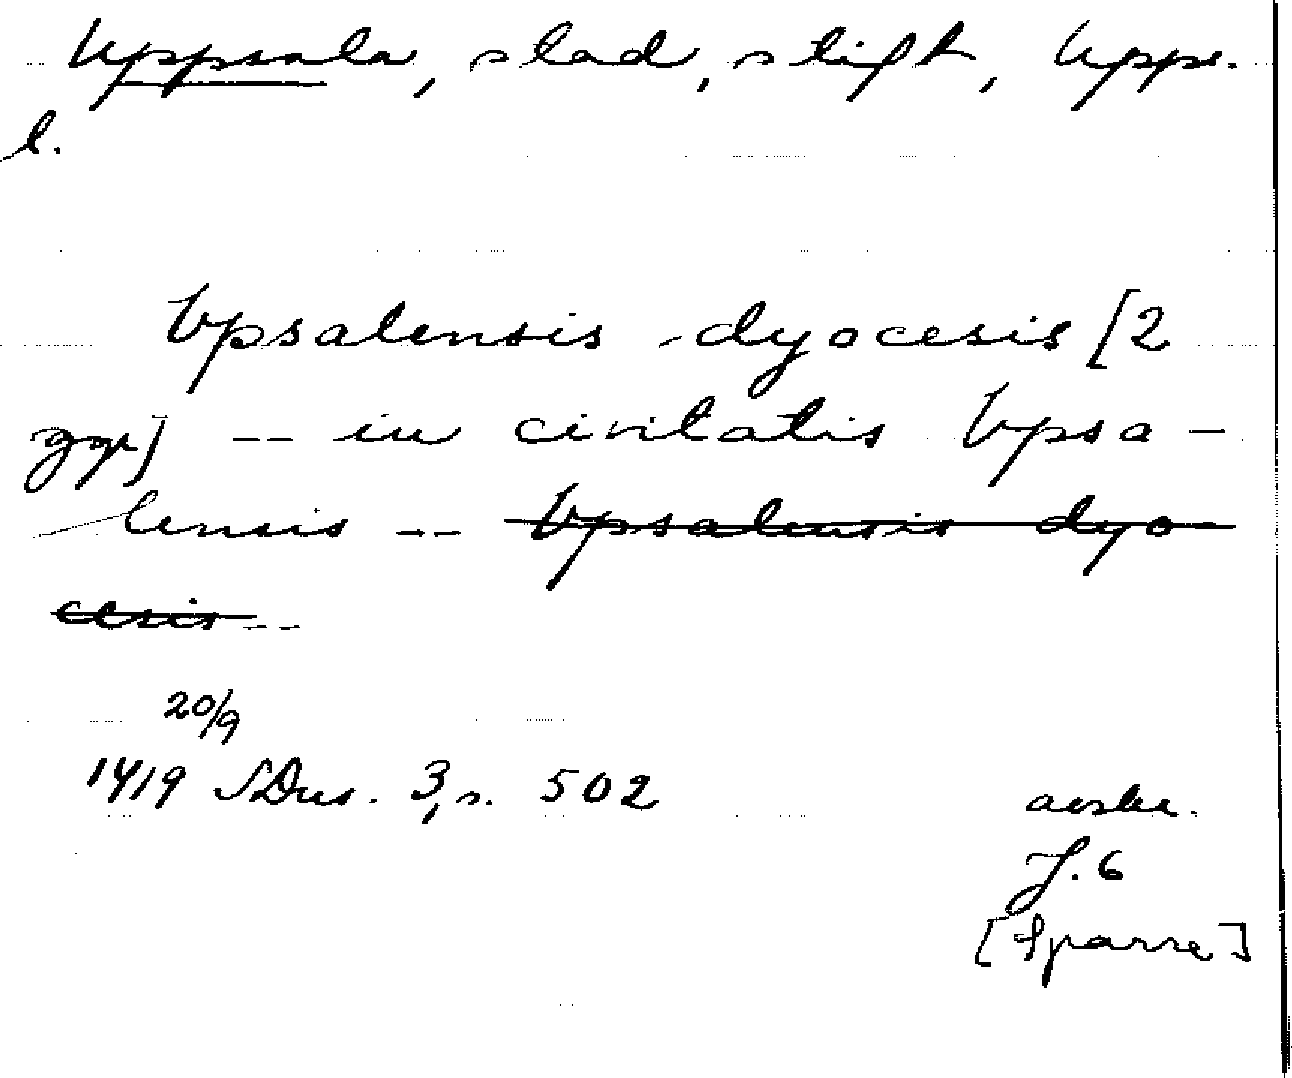 Uppsala, stad, stift, Upps.
l.
Vpsalensis dyocesis [2
ggr] -- in civitatis Vpsa-
lensis -- Vpsalensis dyo-
cesis --
20/9
1419 SDns. 3, s. 502
avskr.
J. 6
[Sparre]